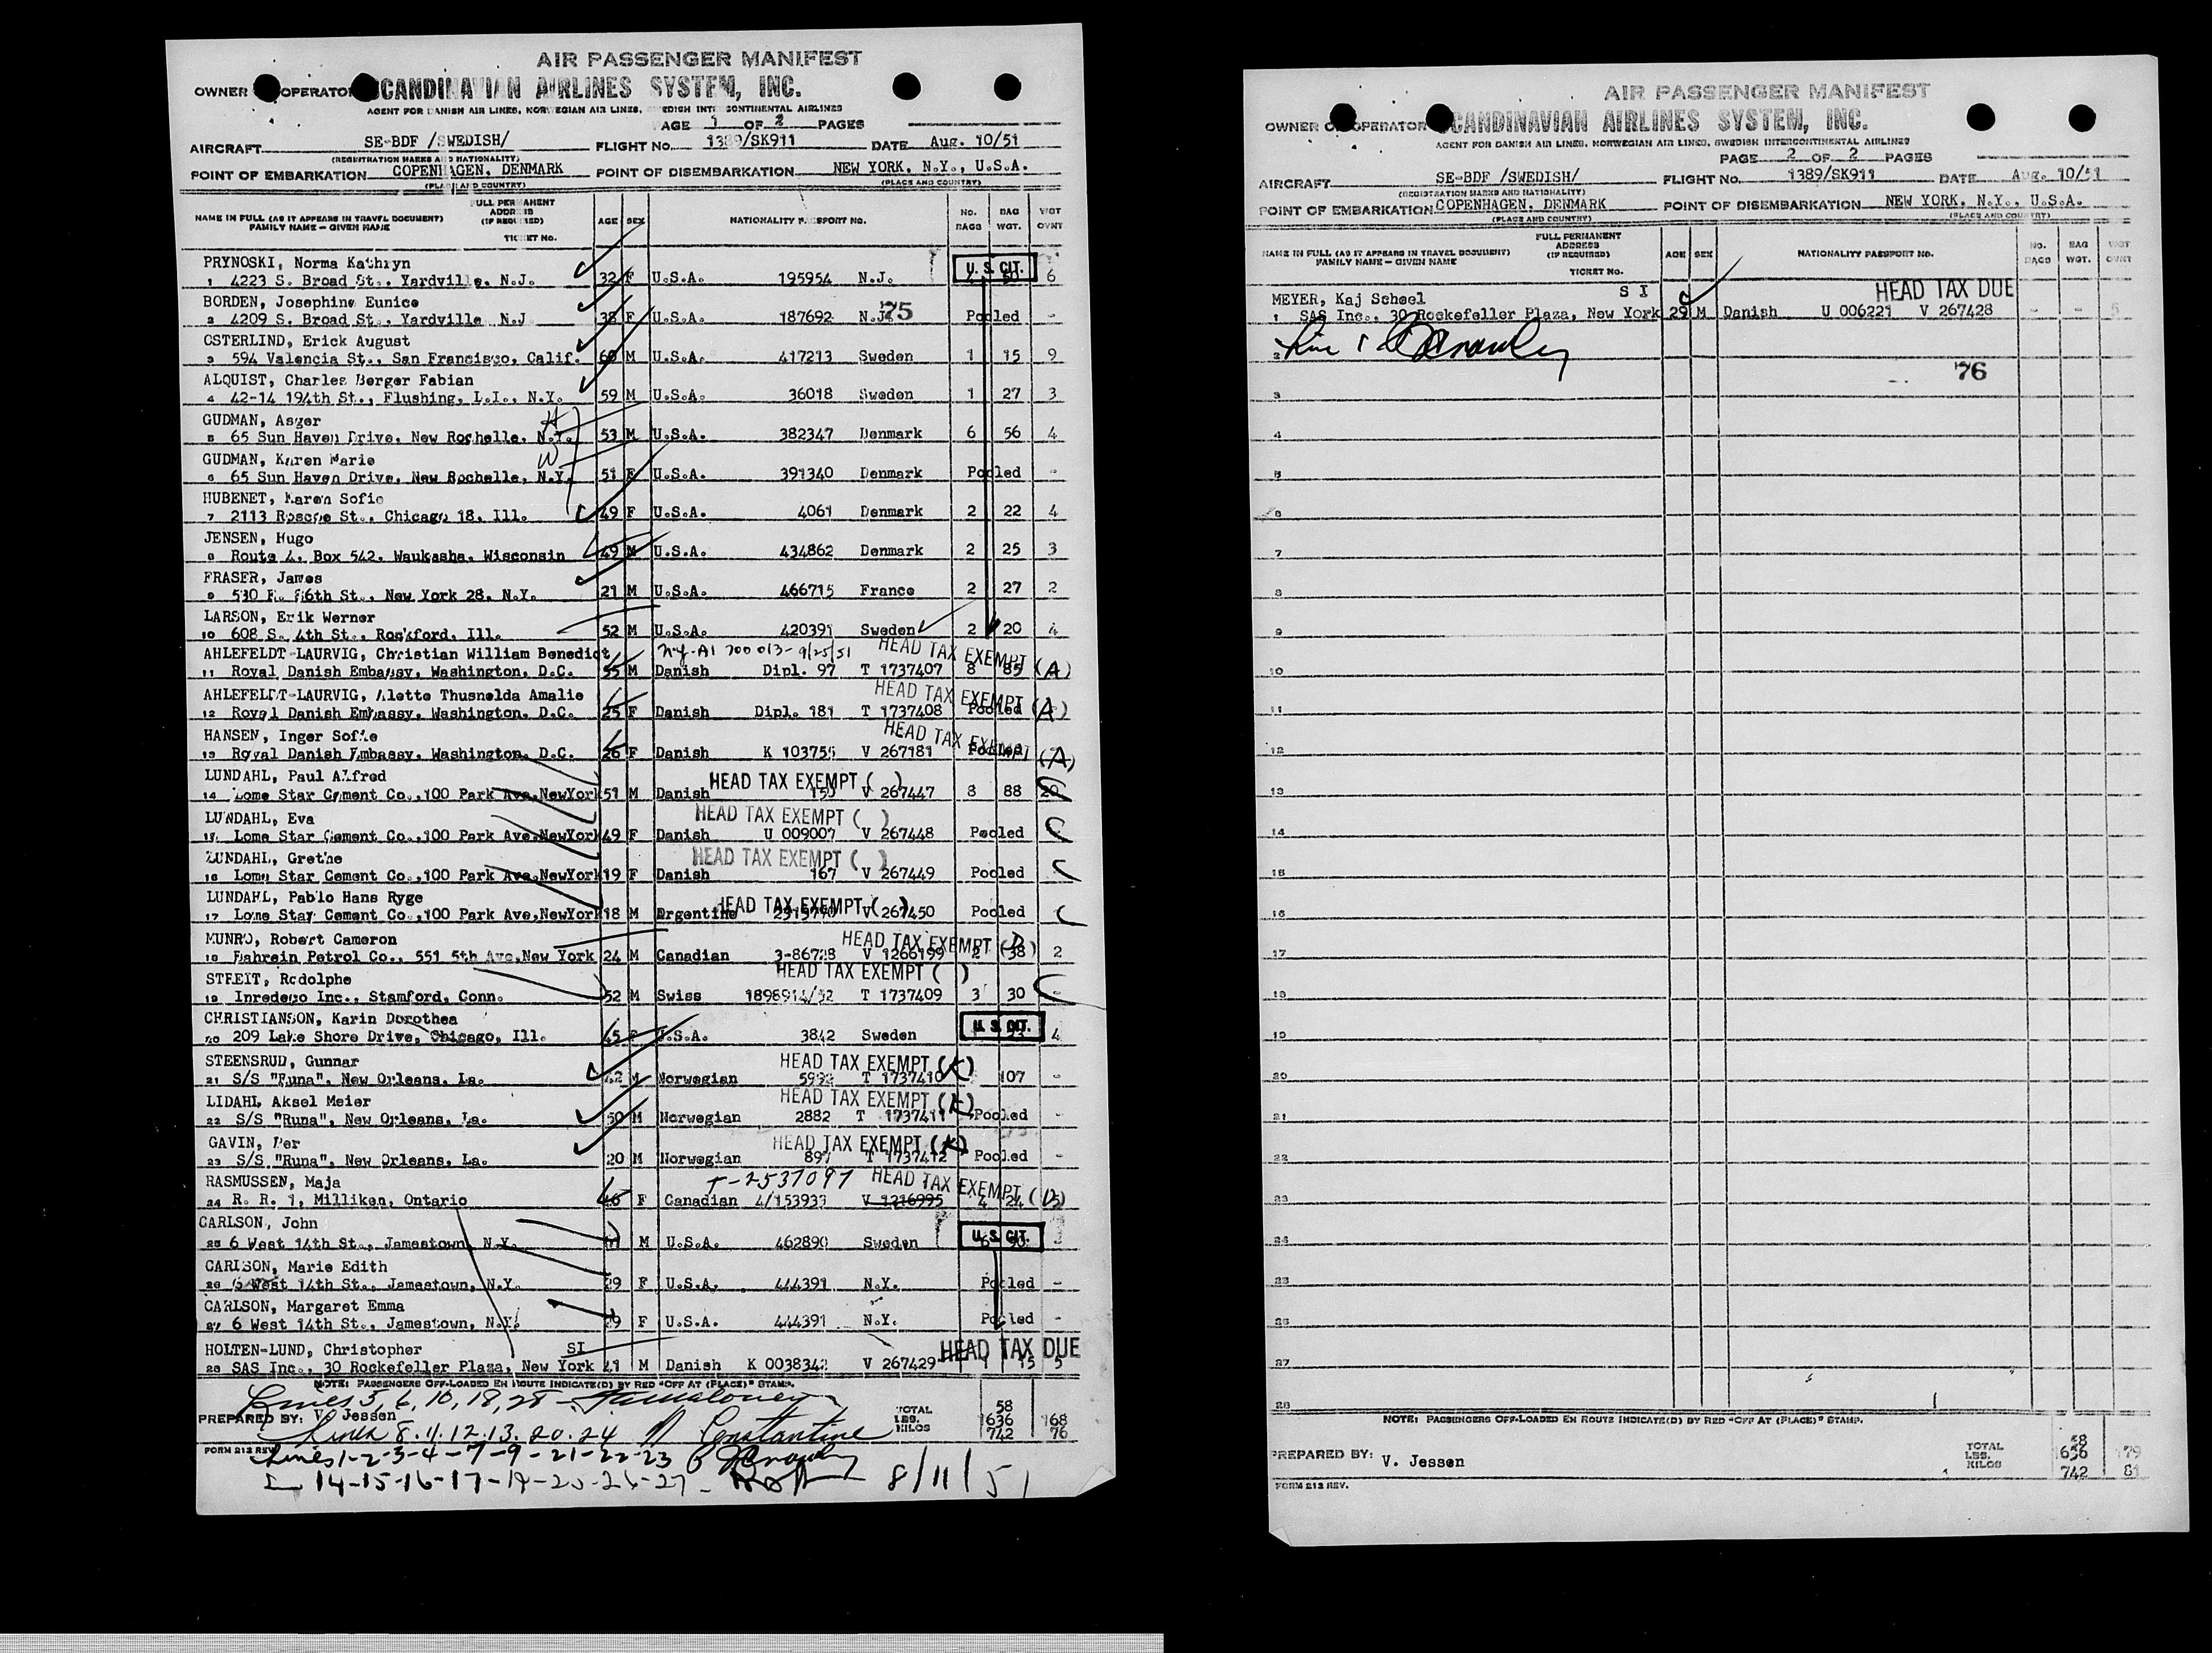 AIR PASSENGER MANIFEST
OWNER OPERATOR SCANDINAVIAN AIRLINES SYSTEM, INC.
AGENT FOR DANISH AIR LINES, NORWEGIAN AIR LINES, SWEDISH INTERCONTINENTAL AIRLINES
PAGE 1 OF 2 PAGES
AIRCRAFT SE-BDF /SWEDISH/ FLIGHT No. 1389/SK911 DATE Aug. 10/51
(REGISTRATION MARKS AND NATIONALITY)
POINT OF EMBARKATION COPENHAGEN, DENMARK POINT OF DISEMBARKATION NEW YORK, N.Y., U.S.A.
(PLACE AND COUNTRY) (PLACE AND COUNTRY)
NAME IN FULL (AS IT APPEARS IN TRAVEL DOCUMENT) FAMILY NAME – GIVEN NAME FULL PERMANENT ADDRESS (IF REQUIRED) TICKET No. AGE SEX NATIONALITY PASSPORT NO. No. BAGS BAG WGT. WGT OVWT
PRYNOSKI, Norma Kathryn U. S. CIT.
1 4223 S. Broad St., Yardville, N.J. 32 F U.S.A. 195954 N.J. 6
BORDEN, Josephine Eunice 75
2 4209 S. Broad St., Yardville N.J 38 F U.S.A. 187692 N.J. Pooled -
OSTERLIND, Erick August
3 594 Valencia St., San Francisco, Calif. 60 M U.S.A. 417213 Sweden 1 15 9
ALQUIST, Charles Berger Fabian
4 42-14 194th St., Flushing, L.I., N.Y. 59 M U.S.A. 36018 Sweden 1 27 3
GUDMAN, Asger H
5 65 Sun Haven Drive, New Rochelle, N.Y. 53 M U.S.A. 382347 Denmark 6 56 4
GUDMAN, Karen Marie W
6 65 Sun Haven Drive, New Rochelle, N.Y. 51 F U.S.A. 391340 Denmark Pooled -
HUBENET, Karen Sofie
7 2113 Roscoe St., Chicago 18, Ill. 49 F U.S.A. 4061 Denmark 2 22 4
JENSEN, Hugo
8 Route 4, Box 542, Waukesha, Wisconsin 49 M U.S.A. 434862 Denmark 2 25 3
FRASER, James
9 530 E. 86th St., New York 28, N.Y. 21 M U.S.A. 466715 France 2 27 2
LARSON, Erik Werner
10 608 S. 4th St., Rockford, Ill. 52 M U.S.A. 420391 Sweden 2 20 4
AHLEFELDT-LAURVIG, Christian William Benedict ny-A1 700 013- 9/25/51 HEAD TAX EXEMPT (A)
11 Royal Danish Embassy, Washington, D.C. 55 M Danish Dipl. 97 T 1737407 8 85
AHLEFELDT-LAURVIG, Alette Thusnelda Amalie HEAD TAX EXEMPT (A)
12 Royal Danish Embassy, Washington, D.C. 25 F Danish Dipl. 181 T 1737408 Pooled
HANSEN, Inger Sofie HEAD TAX EXEMPT (A)
13 Royal Danish Embassy, Washington, D.C. 26 F Danish K 103755 V 267181 Pooled
LUNDAHL, Paul Alfred HEAD TAX EXEMPT ( )
14 Lome Star Cement Co.,100 Park Ave,NewYork 51 M Danish 159 V 267447 8 88 20
LUNDAHL, Eva HEAD TAX EXEMPT ( )
15 Lome Star Cement Co.,100 Park Ave,NewYork 49 F Danish U 009007 V 267448 Pooled C
LUNDAHL, Grethe HEAD TAX EXEMPT ( )
16 Lome Star Cement Co.,100 Park Ave,NewYork 19 F Danish 167 V 267449 Pooled C
LUNDAHL, Pablo Hans Ryge HEAD TAX EXEMPT ( )
17 Lome Star Cement Co.,100 Park Ave,NewYork 18 M Drgentine V 267450 Pooled C
MUNRO, Robert Cameron HEAD TAX EXEMPT (D)
18 Bahrein Petrol Co., 551 5th Ave,New York 24 M Canadian 3-86728 V 1266199 2 38 2
STREIT, Rodolphe HEAD TAX EXEMPT ( )
19 Inredeco Inc., Stamford, Conn. 52 M Swiss 1898914/52 T 1737409 3 30 C
CHRISTIANSON, Karin Dorothea U. S. CIT.
20 209 Lake Shore Drive, Chicago, Ill. 45 F U.S.A. 3842 Sweden 4
STEENSRUD, Gunnar HEAD TAX EXEMPT (K)
21 S/S "Runa", New Orleans, La. 42 M Norwegian 5992 T 1737410 107 -
LIDAHL Aksel Meier HEAD TAX EXEMPT (K)
22 S/S "Runa", New Orleans, La. 50 M Norwegian 2882 T 1737411 Pooled -
GAVIN, Per HEAD TAX EXEMPT (K)
23 S/S "Runa", New Orleans, La. 20 M Norwegian 897 T 1737412 Pooled -
RASMUSSEN, Maja T-2537097 HEAD TAX EXEMPT (D)
24 R. R. 1, Milliken, Ontario 46 F Canadian 4/153933 V 1216995 4 24
CARLSON, John U. S. CIT.
25 6 West 14th St., Jamestown, N.Y. M U.S.A. 462890 Sweden
CARLSON, Marie Edith
26 6 West 14th St., Jamestown, N.Y. 29 F U.S.A. 444391 N.Y. Pooled -
CARLSON, Margaret Emma
27 6 West 14th St., Jamestown, N.Y. F U.S.A. 444391 N.Y. Pooled -
HOLTEN-LUND, Christopher SI HEAD TAX DUE
28 SAS Inc., 30 Rockefeller Plaza, New York 41 M Danish K 0038342 V 267429 1 15 5
NOTE: PASSENGERS OFF-LOADED EN ROUTE INDICATE(D) BY RED "OFF AT (PLACE)" STAMP.
Lines 5, 6, 10, 18, 28
PREPARED BY: V. Jessen
TOTAL 58
LBS. 1636 168
KILOS 742 76
Lines 8.11.12.13.20.24 Constantine
FORM 213 REV. Lines 1-2-3-4-7-9-21-22-23
14-15-16-17-19-25-26-27 8/11/51
AIR PASSENGER MANIFEST
OWNER OR OPERATOR SCANDINAVIAN AIRLINES SYSTEM, INC.
AGENT FOR DANISH AIR LINES, NORWEGIAN AIR LINES, SWEDISH INTERCONTINENTAL AIRLINES
PAGE 2 OF 2 PAGES
AIRCRAFT SE-BDF /SWEDISH/ FLIGHT No. 1389/SK911 DATE Aug. 10/51
(REGISTRATION MARKS AND NATIONALITY)
POINT OF EMBARKATION COPENHAGEN, DENMARK POINT OF DISEMBARKATION NEW YORK, N.Y., U.S.A.
(PLACE AND COUNTRY) (PLACE AND COUNTRY)
NAME IN FULL (AS IT APPEARS IN TRAVEL DOCUMENT) FAMILY NAME – GIVEN NAME FULL PERMANENT ADDRESS (IF REQUIRED) TICKET No. AGE SEX NATIONALITY PASSPORT NO. NO. BAGS BAG WGT. WGT OVWT
MEYER, Kaj Scheel S I HEAD TAX DUE
1 SAS Inc., 30 Rockefeller Plaza, New York 29 M Danish U 006221 V 267428 - - 5
2 Line 1
76
3
4
5
6
7
8
9
10
11
12
13
14
15
16
17
18
19
20
21
22
23
24
25
26
27
28
NOTE: PASSENGERS OFF-LOADED EN ROUTE INDICATE(D) BY RED "OFF AT (PLACE)" STAMP.
PREPARED BY: V. Jessen
TOTAL 58
LBS. 1636 179
KILOS 742 81
FORM 213 REV.